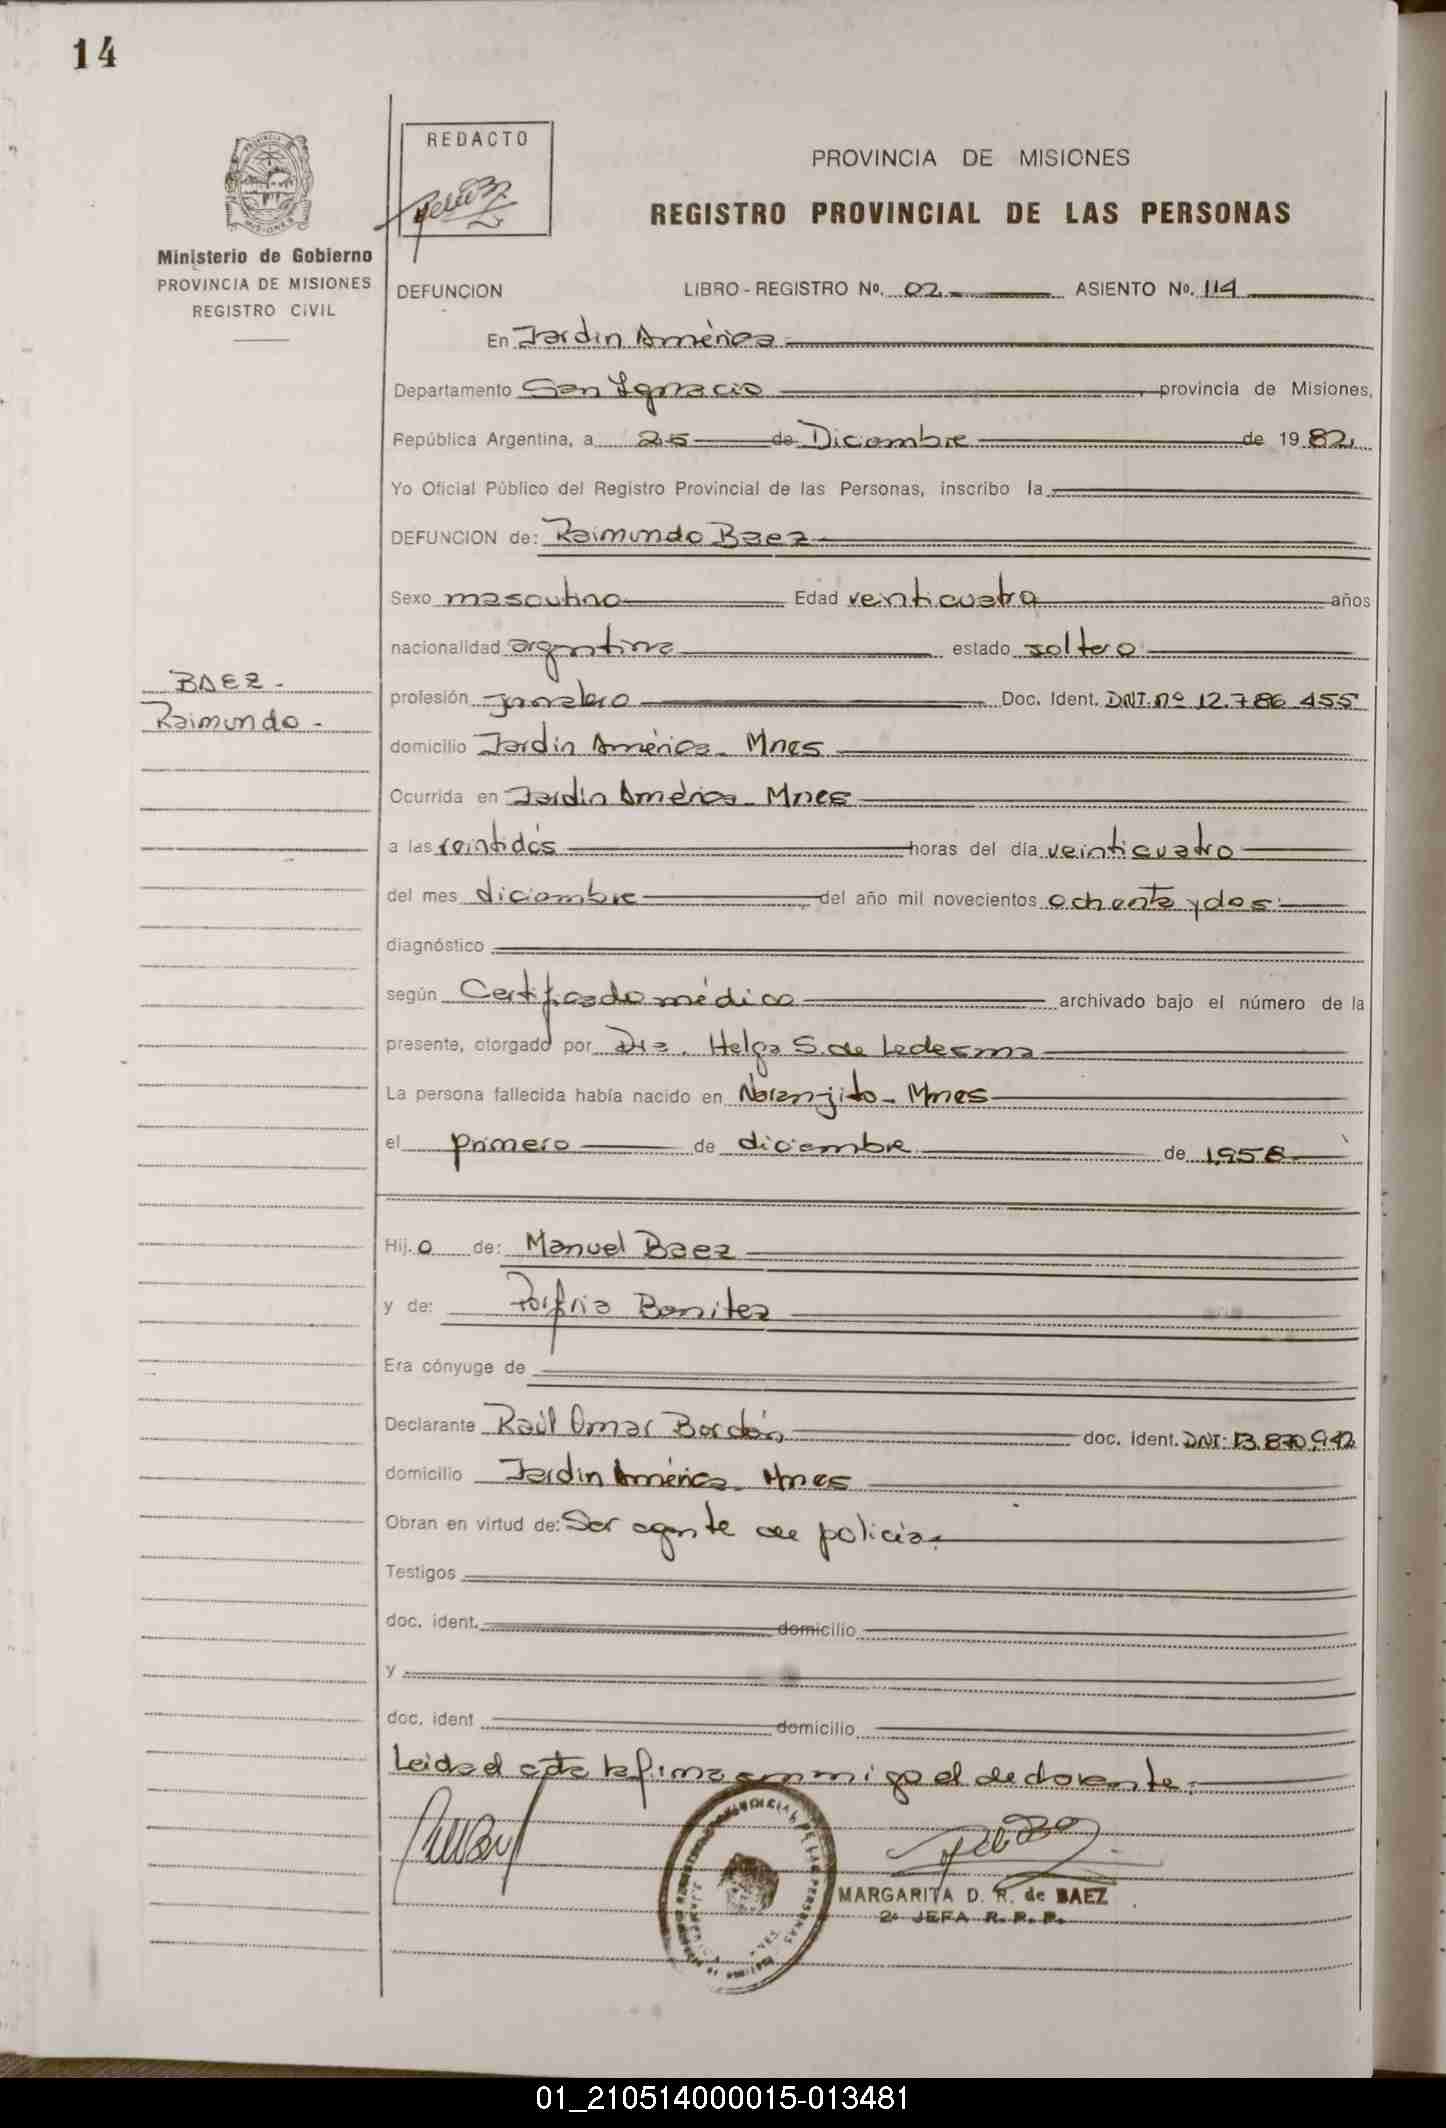 14
REDACTO
PROVINCIA DE MISIONES
REGISTRO PROVINCIAL DE LAS PERSONAS
Ministerio de Gobierno
PROVINCIA DE MISIONES
REGISTRO CIVIL
DEFUNCION LIBRO - REGISTRO No. 02 ASIENTO No. 114
En Jardin América
Departamento San Ignacio, provincia de Misiones,
República Argentina, a 25 de Diciembre de 1982
Yo Oficial Público del Registro Provincial de las Personas, inscribo la
DEFUNCION de: Raimundo Baez
Sexo masculino Edad veinticuatro años
nacionalidad argentina estado soltero
BAEZ.-
Raimundo.-
profesión jornalero Doc. Ident. DNI. nº 12.786.455
domicilio Jardin América. Mnes
Ocurrida en Jardin América. Mnes
a las veintidós horas del día veinticuatro
del mes diciembre del año mil novecientos ochenta y dos
diagnóstico
según Certificado médico archivado bajo el número de la
presente, otorgado por Dra. Helga S. de Ledesma
La persona fallecida había nacido en Naranjito - Mnes
el primero de diciembre de 1958
Hij.o de: Manuel Baez
y de: Porfiria Benitez
Era cónyuge de
Declarante Raúl Omar Bordón doc. ident. DNI: 13.870.942
domicilio Jardin América. Mnes
Obran en virtud de: Ser agente de policía.
Testigos
doc. ident. domicilio
y
doc. ident domicilio
Leida el acta la firma conmigo el declarante.
MARGARITA D. R. de BAEZ
2º JEFA R. P. P.
01_210514000015-013481